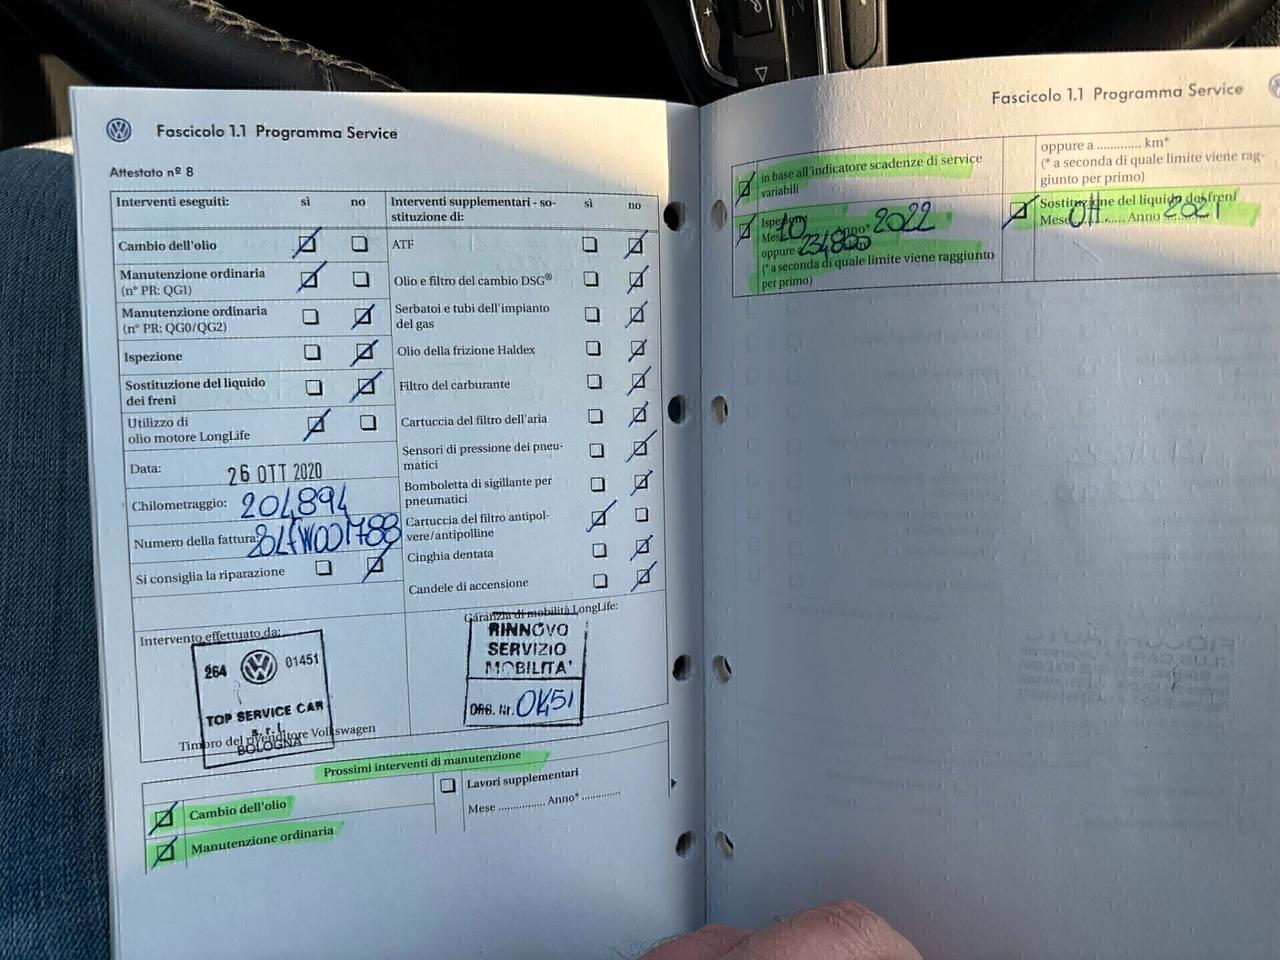 Fascicolo 1.1 Programma Service
Attestato nº 8
Interventi eseguiti: sì no
Cambio dell'olio
Manutenzione ordinaria
(nº PR: QG1)
Manutenzione ordinaria
(nº PR: QG0/QG2)
Ispezione
Sostituzione del liquido
dei freni
Utilizzo di
olio motore LongLife
Data: 26 OTT 2020
Chilometraggio: 204894
Numero della fattura:
Si consiglia la riparazione
Intervento effettuato da:
264 01451
TOP SERVICE CAR
s.r.l.
BOLOGNA
Timbro del rivenditore Volkswagen
Interventi supplementari - so-
stituzione di: sì no
ATF
Olio e filtro del cambio DSG®
Serbatoi e tubi dell'impianto
del gas
Olio della frizione Haldex
Filtro del carburante
Cartuccia del filtro dell'aria
Sensori di pressione dei pneu-
matici
Bomboletta di sigillante per
pneumatici
Cartuccia del filtro antipol-
vere/antipolline
Cinghia dentata
Candele di accensione
Garanzia di mobilità LongLife:
RINNOVO
SERVIZIO
MOBILITA'
ORG. Nr.
Prossimi interventi di manutenzione
Cambio dell'olio
Manutenzione ordinaria
Lavori supplementari
Mese ................ Anno* .............
Fascicolo 1.1 Programma Service
in base all'indicatore scadenze di service
variabili
Ispezione
Mese 10 Anno* 2022
oppure a
(* a seconda di quale limite viene raggiunto
per primo)
oppure a ............. km*
(* a seconda di quale limite viene rag-
giunto per primo)
Sostituzione del liquido dei freni
Mese Ott Anno 2021